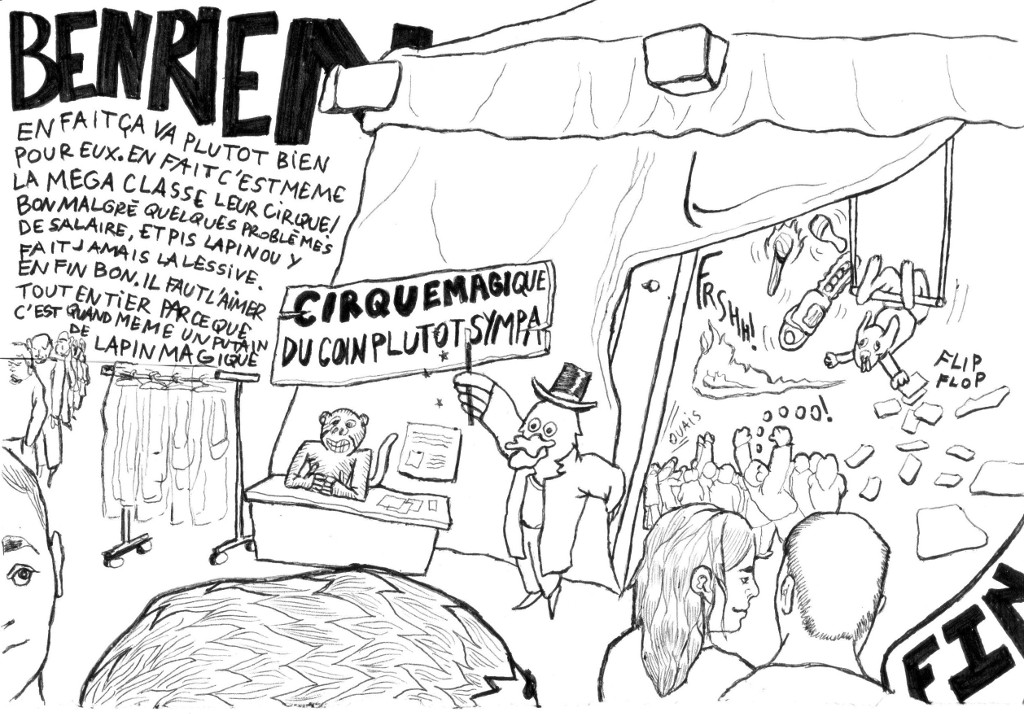 BEN RIEN
EN FAIT ÇA VA PLUTOT BIEN
POUR EUX. EN FAIT C'EST MEME
LA MEGA CLASSE LEUR CIRQUE,
BON MALGRÉ QUELQUES PROBLÈMES
DE SALAIRE, ET PIS LAPINOU Y
FAIT JAMAIS LA LESSIVE.
ENFIN BON. IL FAUT L'AIMER
TOUT ENTIER PARCE QUE
C'EST QUAND MEME UN PUTAIN
DE
LAPIN MAGIQUE
CIRQUE MAGIQUE
DU COIN PLUTOT SYMPA
FRSHH!
FLIP
FLOP
OUAIS
OOOO!
FIN